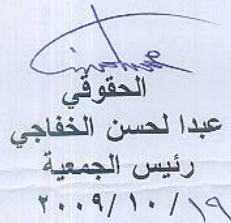 الحقوقي
عبدا لحسن الخفاجي
رئيس الجمعية
٢٠٠٩/١٠/١٩